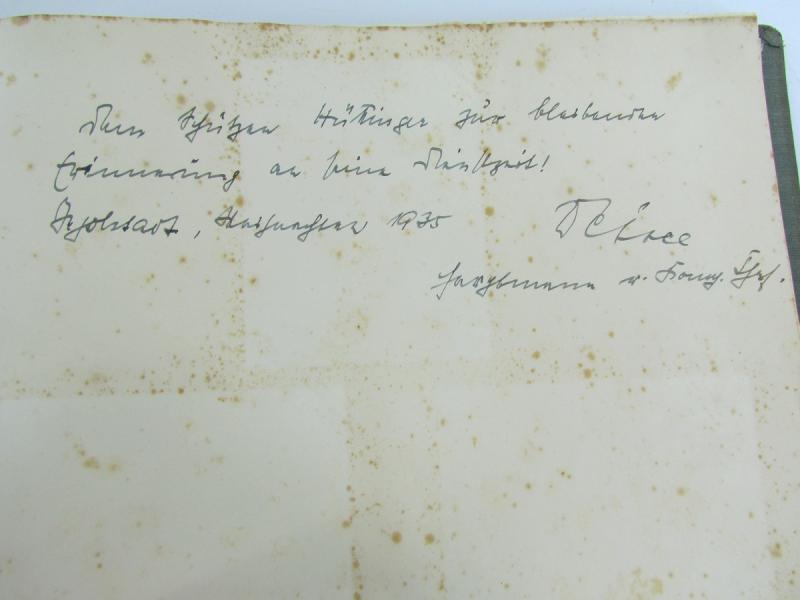 Dem Schützen Hüttinger zur bleibenden
Erinnerung an seine Dienstzeit!
Ingolstadt, Weihnachten 1935
Hauptmann u. Komp. Chef.